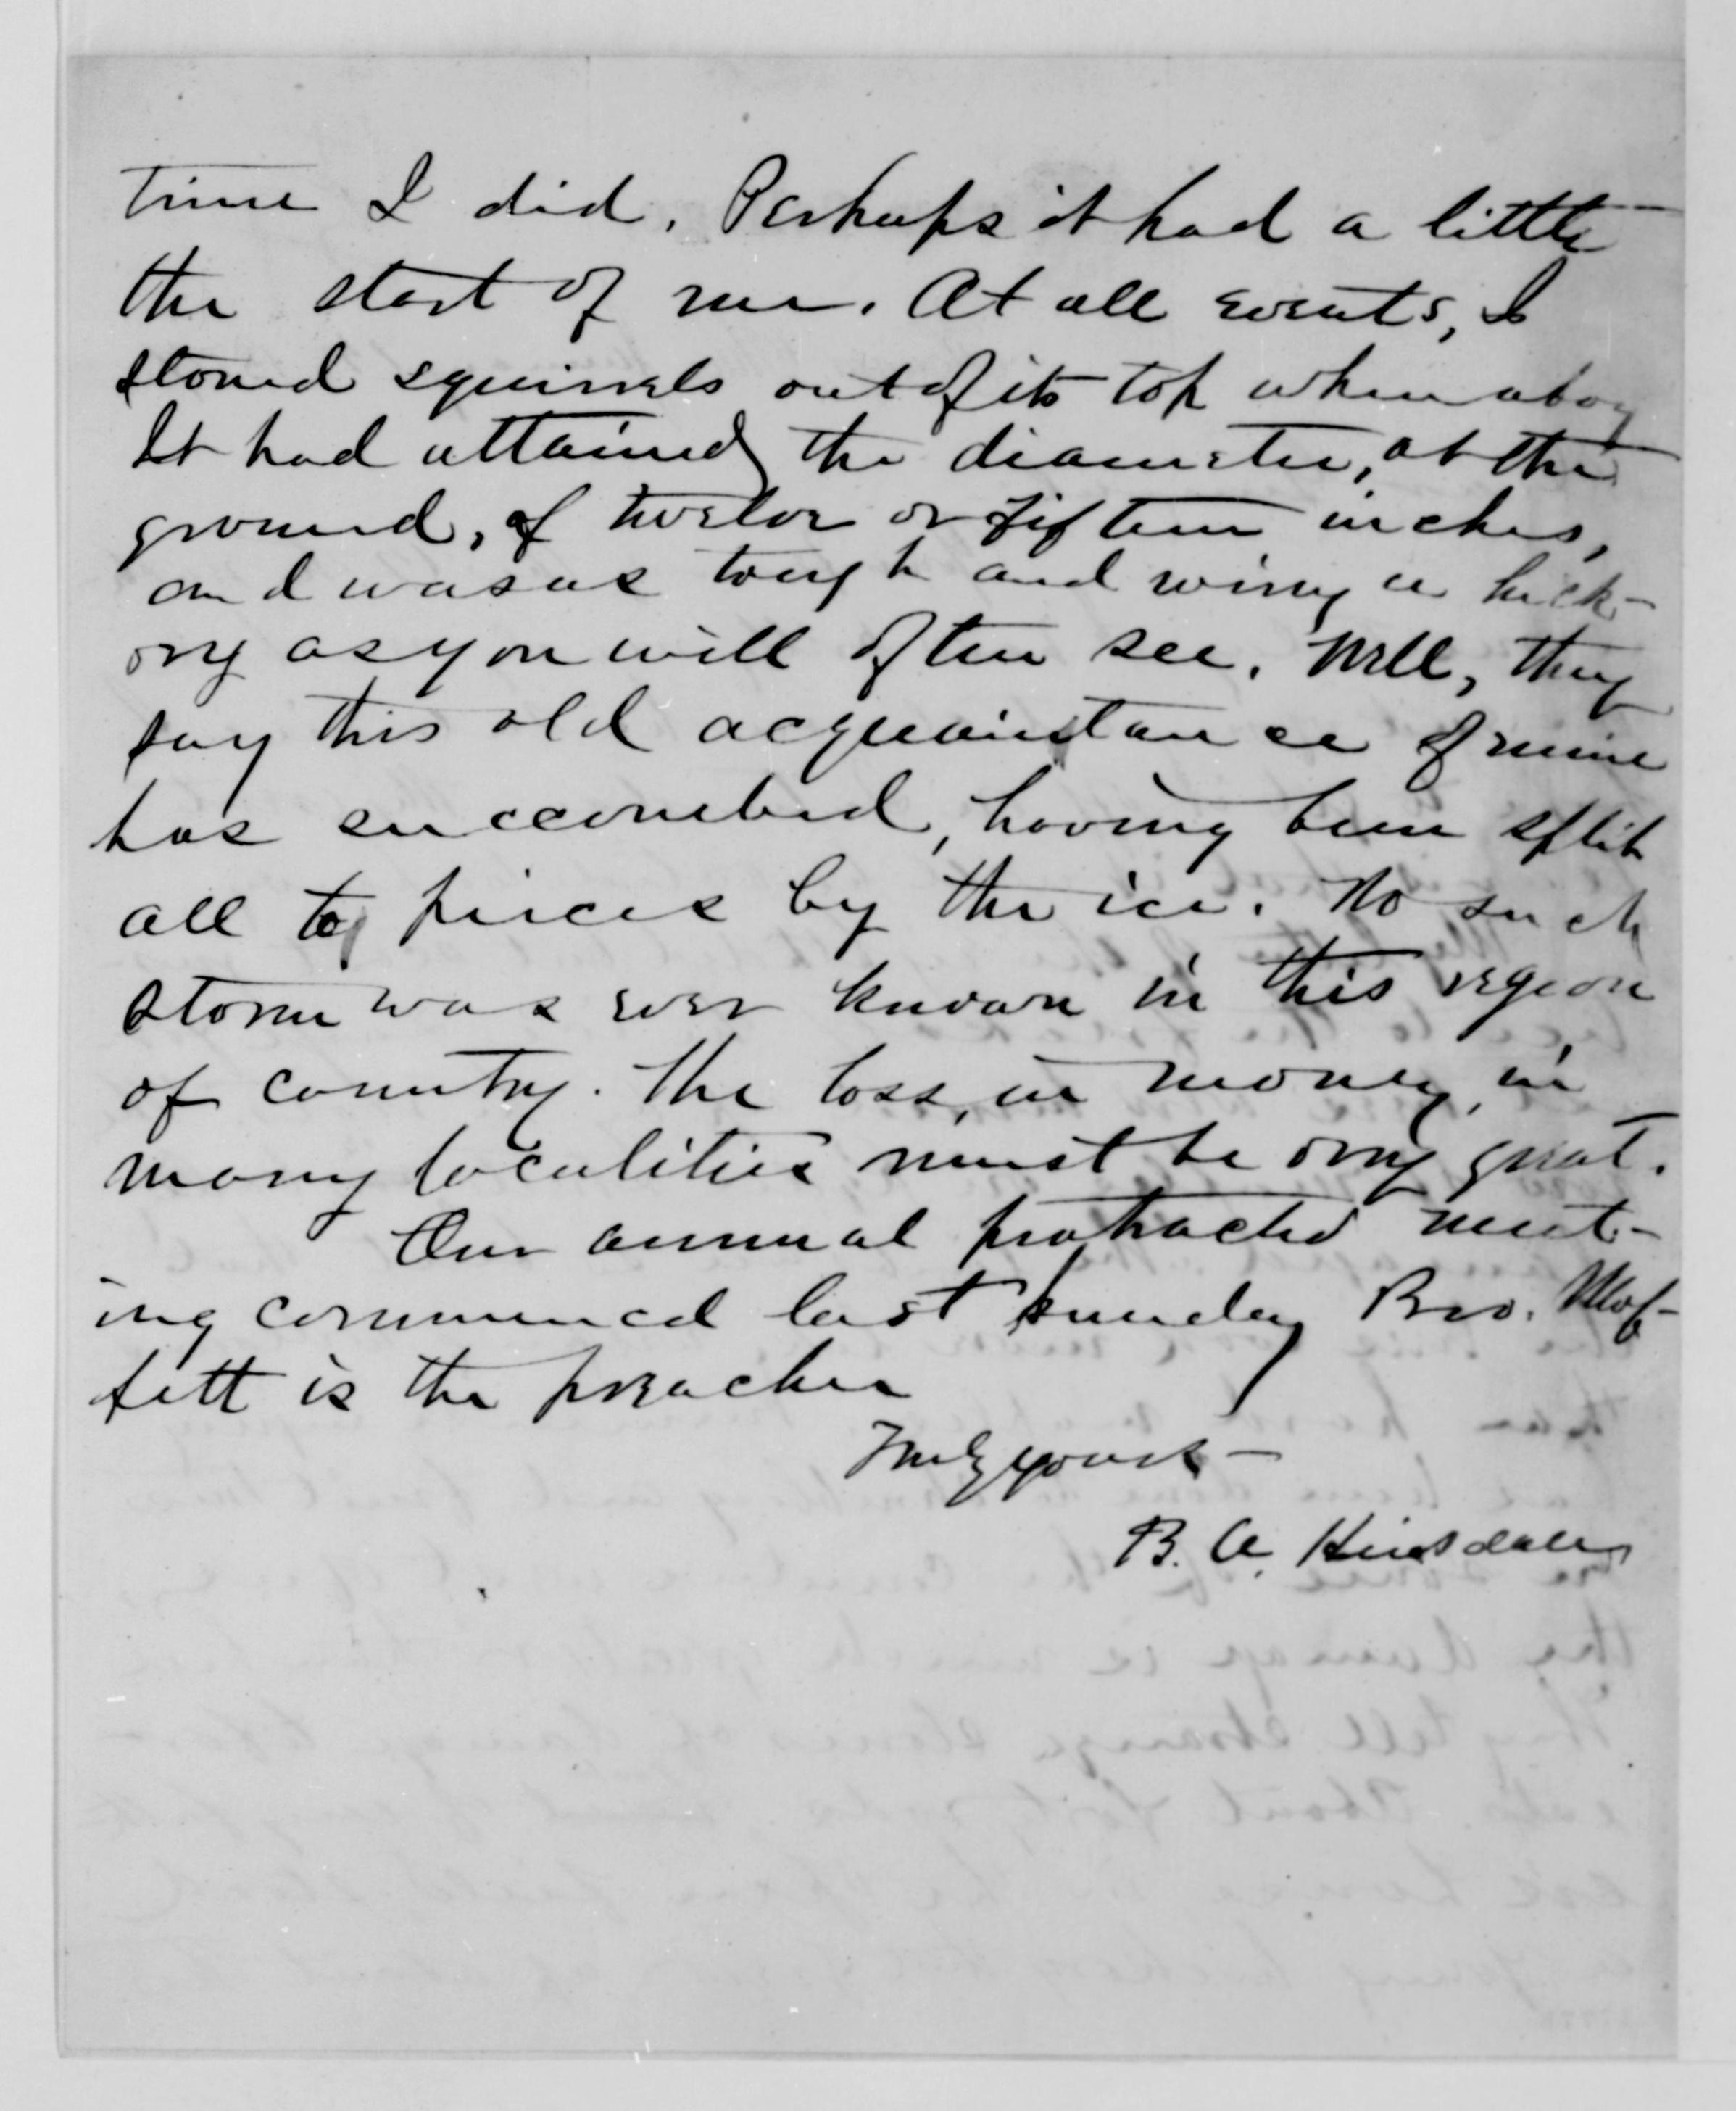 time I did. Perhaps it had a little
the start of me. At all events, I
stoned squirrels out of its top when a boy
It had attained the diameter, at the
ground, of twelve or fifteen inches,
and was as tough and wiry a hick-
ory as you will often see. Well, they
say this old acquaintance of mine
has succombed, having been split
all to pieces by the ice. No such
storm was ever known in this region
of country. The loss, in money, in
many localities must be very great.
Our annual protracted meet-
ing commenced last sunday Bro. Mof-
fett is the preacher
Truly yours -
B. A. Hinsdale